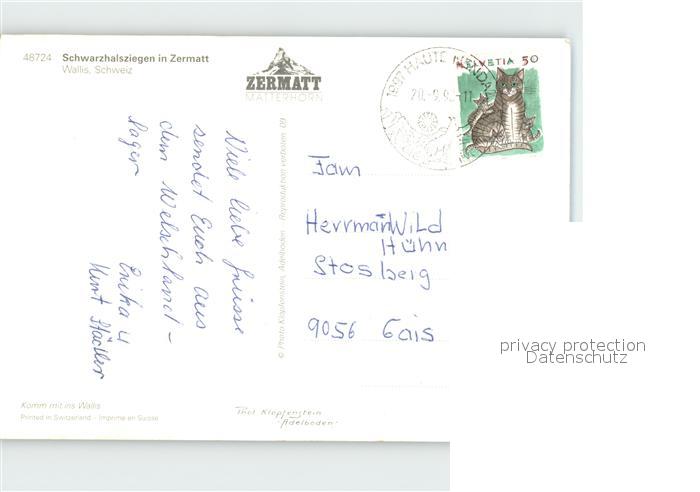 48724 Schwarzhalsziegen in Zermatt
Wallis, Schweiz
ZERMATT
MATTERHORN
1997 HAUTE NENDAZ
HELVETIA 50
Viele liebe Grüsse
sendet Euch aus
dem Welschland-
Lager
Erika u
Kurt
© Photo Klopfenstein, Adelboden Reproduktion verboten 09
Fam
Herrmann Wild
Höhn
Stosberg
9056 Gais
Komm mit ins Wallis
Printed in Switzerland - Imprimé en Suisse
Phot Klopfenstein
Adelboden
privacy protection
Datenschutz